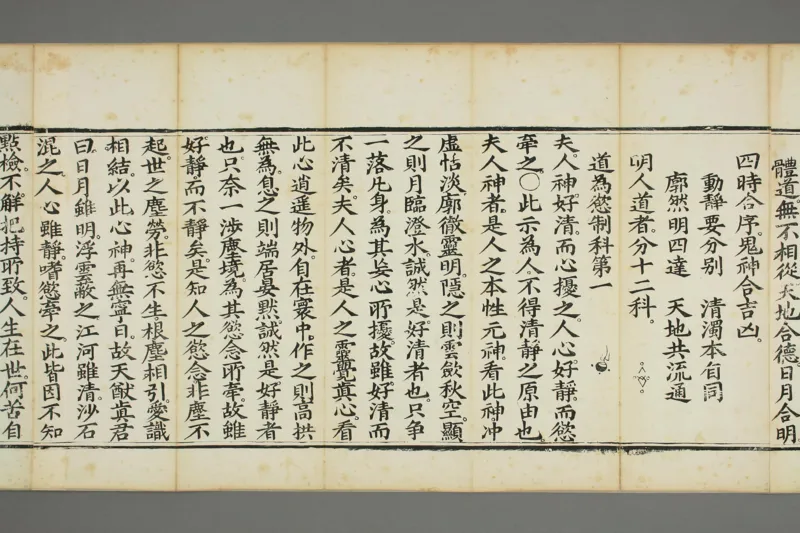 體道。無不相從。天地合德。日月合明。
四時合序。鬼神合吉凶。
動靜要分別　清濁本自同
廓然明四達　天地共流通
明人道者。分十二科。
道為慾制科第一
夫。人神好清。而心擾之。人心好靜。而慾
牽之。○此示為人。不得清靜之原由也。
夫人神者。是人之本性元神。看此神。冲
虛恬淡。廓徹靈明。隱之則雲斂秋空。顯
之則月臨澄水。誠然是好清者也。只争
一落凡身。為其妄心所擾。故雖好清而
不清矣。夫人心者。是人之靈覺真心。看
此心。逍遥物外。自在寰中。作之則高拱
無為。息之則端居晏默。誠然是好靜者
也。只奈一涉塵境。為其慾念所牽。故雖
好靜。而不靜矣。是知人之慾念。非塵不
起。世之塵勞。非慾不生。根塵相引。愛識
相結。以此心神。再無寧日。故天猷真君
曰。日月雖明。浮雲蔽之。江河雖清。沙石
混之。人心雖靜。嗜慾牽之。此皆因不知
點檢。不解把持所致。人生在世。何苦自